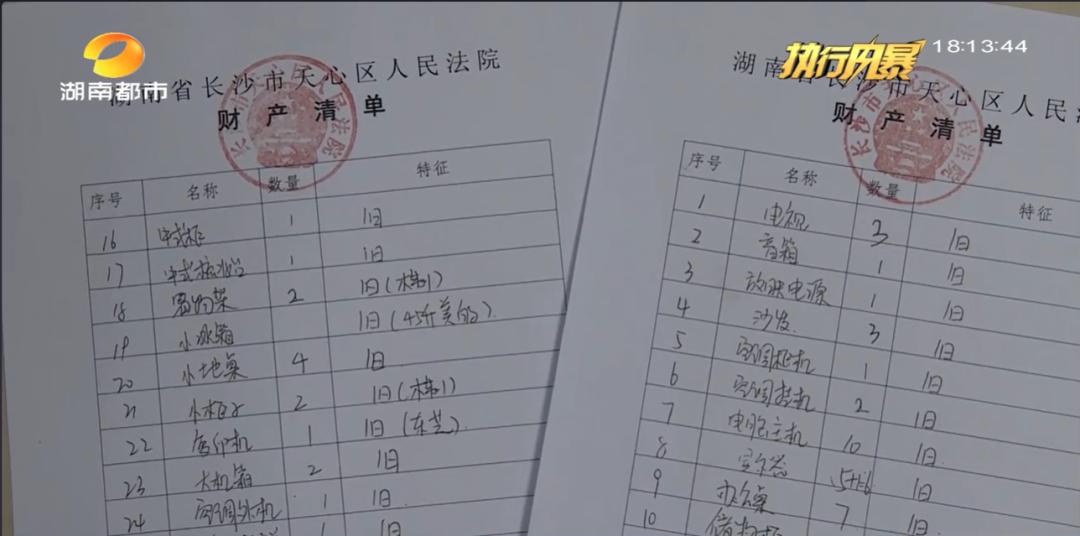 湖南都市
执行风暴
18:13:44
湖南省长沙市天心区人民法院
财产清单
序号 名称 数量 特征
16 1 旧
17 1 旧
18 置物架 2 旧
19 小冰箱 旧
20 小地桌 4 旧
21 小柜子 2 旧
22 复印机 1 旧(东芝)
23 大机箱 2 旧
24 空调外机 1 旧
1 旧
湖南省长沙市天心区人民法
财产清单
序号 名称 数量 特征
1 电视 3 旧
2 音箱 1 旧
3 电源 1 旧
4 沙发 3 旧
5 空调柜机 1 旧
6 空调挂机 2 旧
7 电脑主机 10 旧
8 旧
9 办公桌 7 旧
10